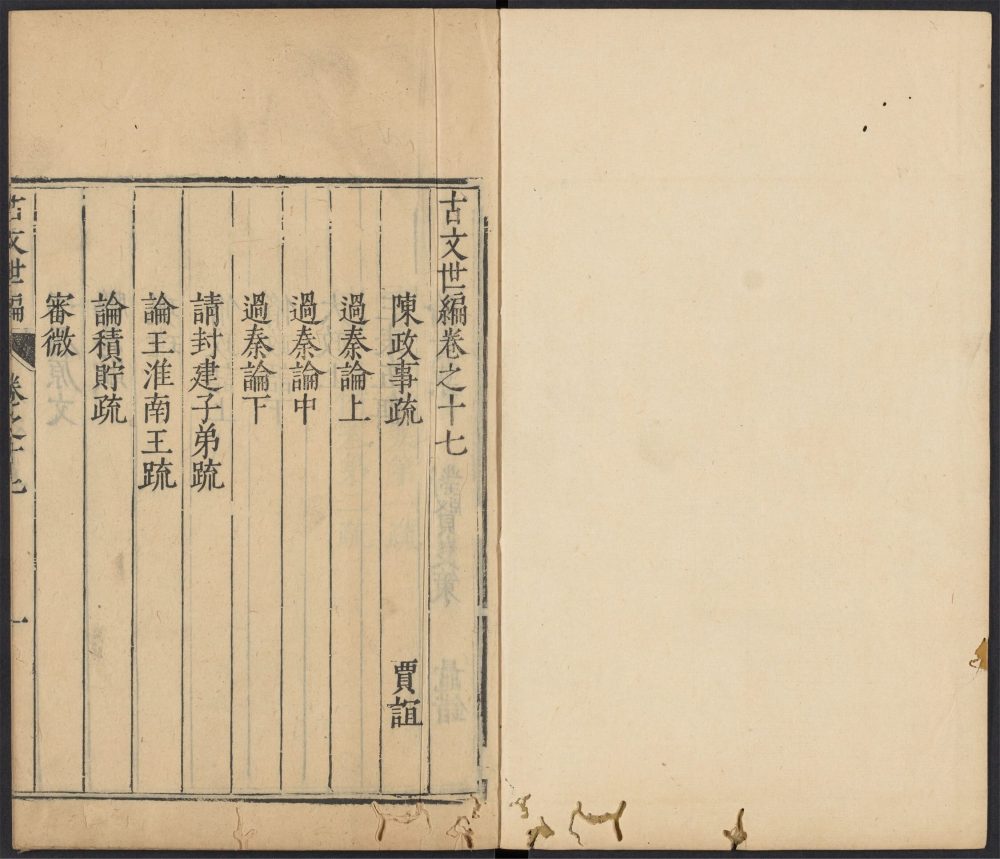 古文世編卷之十七
陳政事疏 賈誼
過秦論上
過秦論中
過秦論下
請封建子弟疏
論王淮南王疏
論積貯疏
審微
古文世編 卷之十七 一